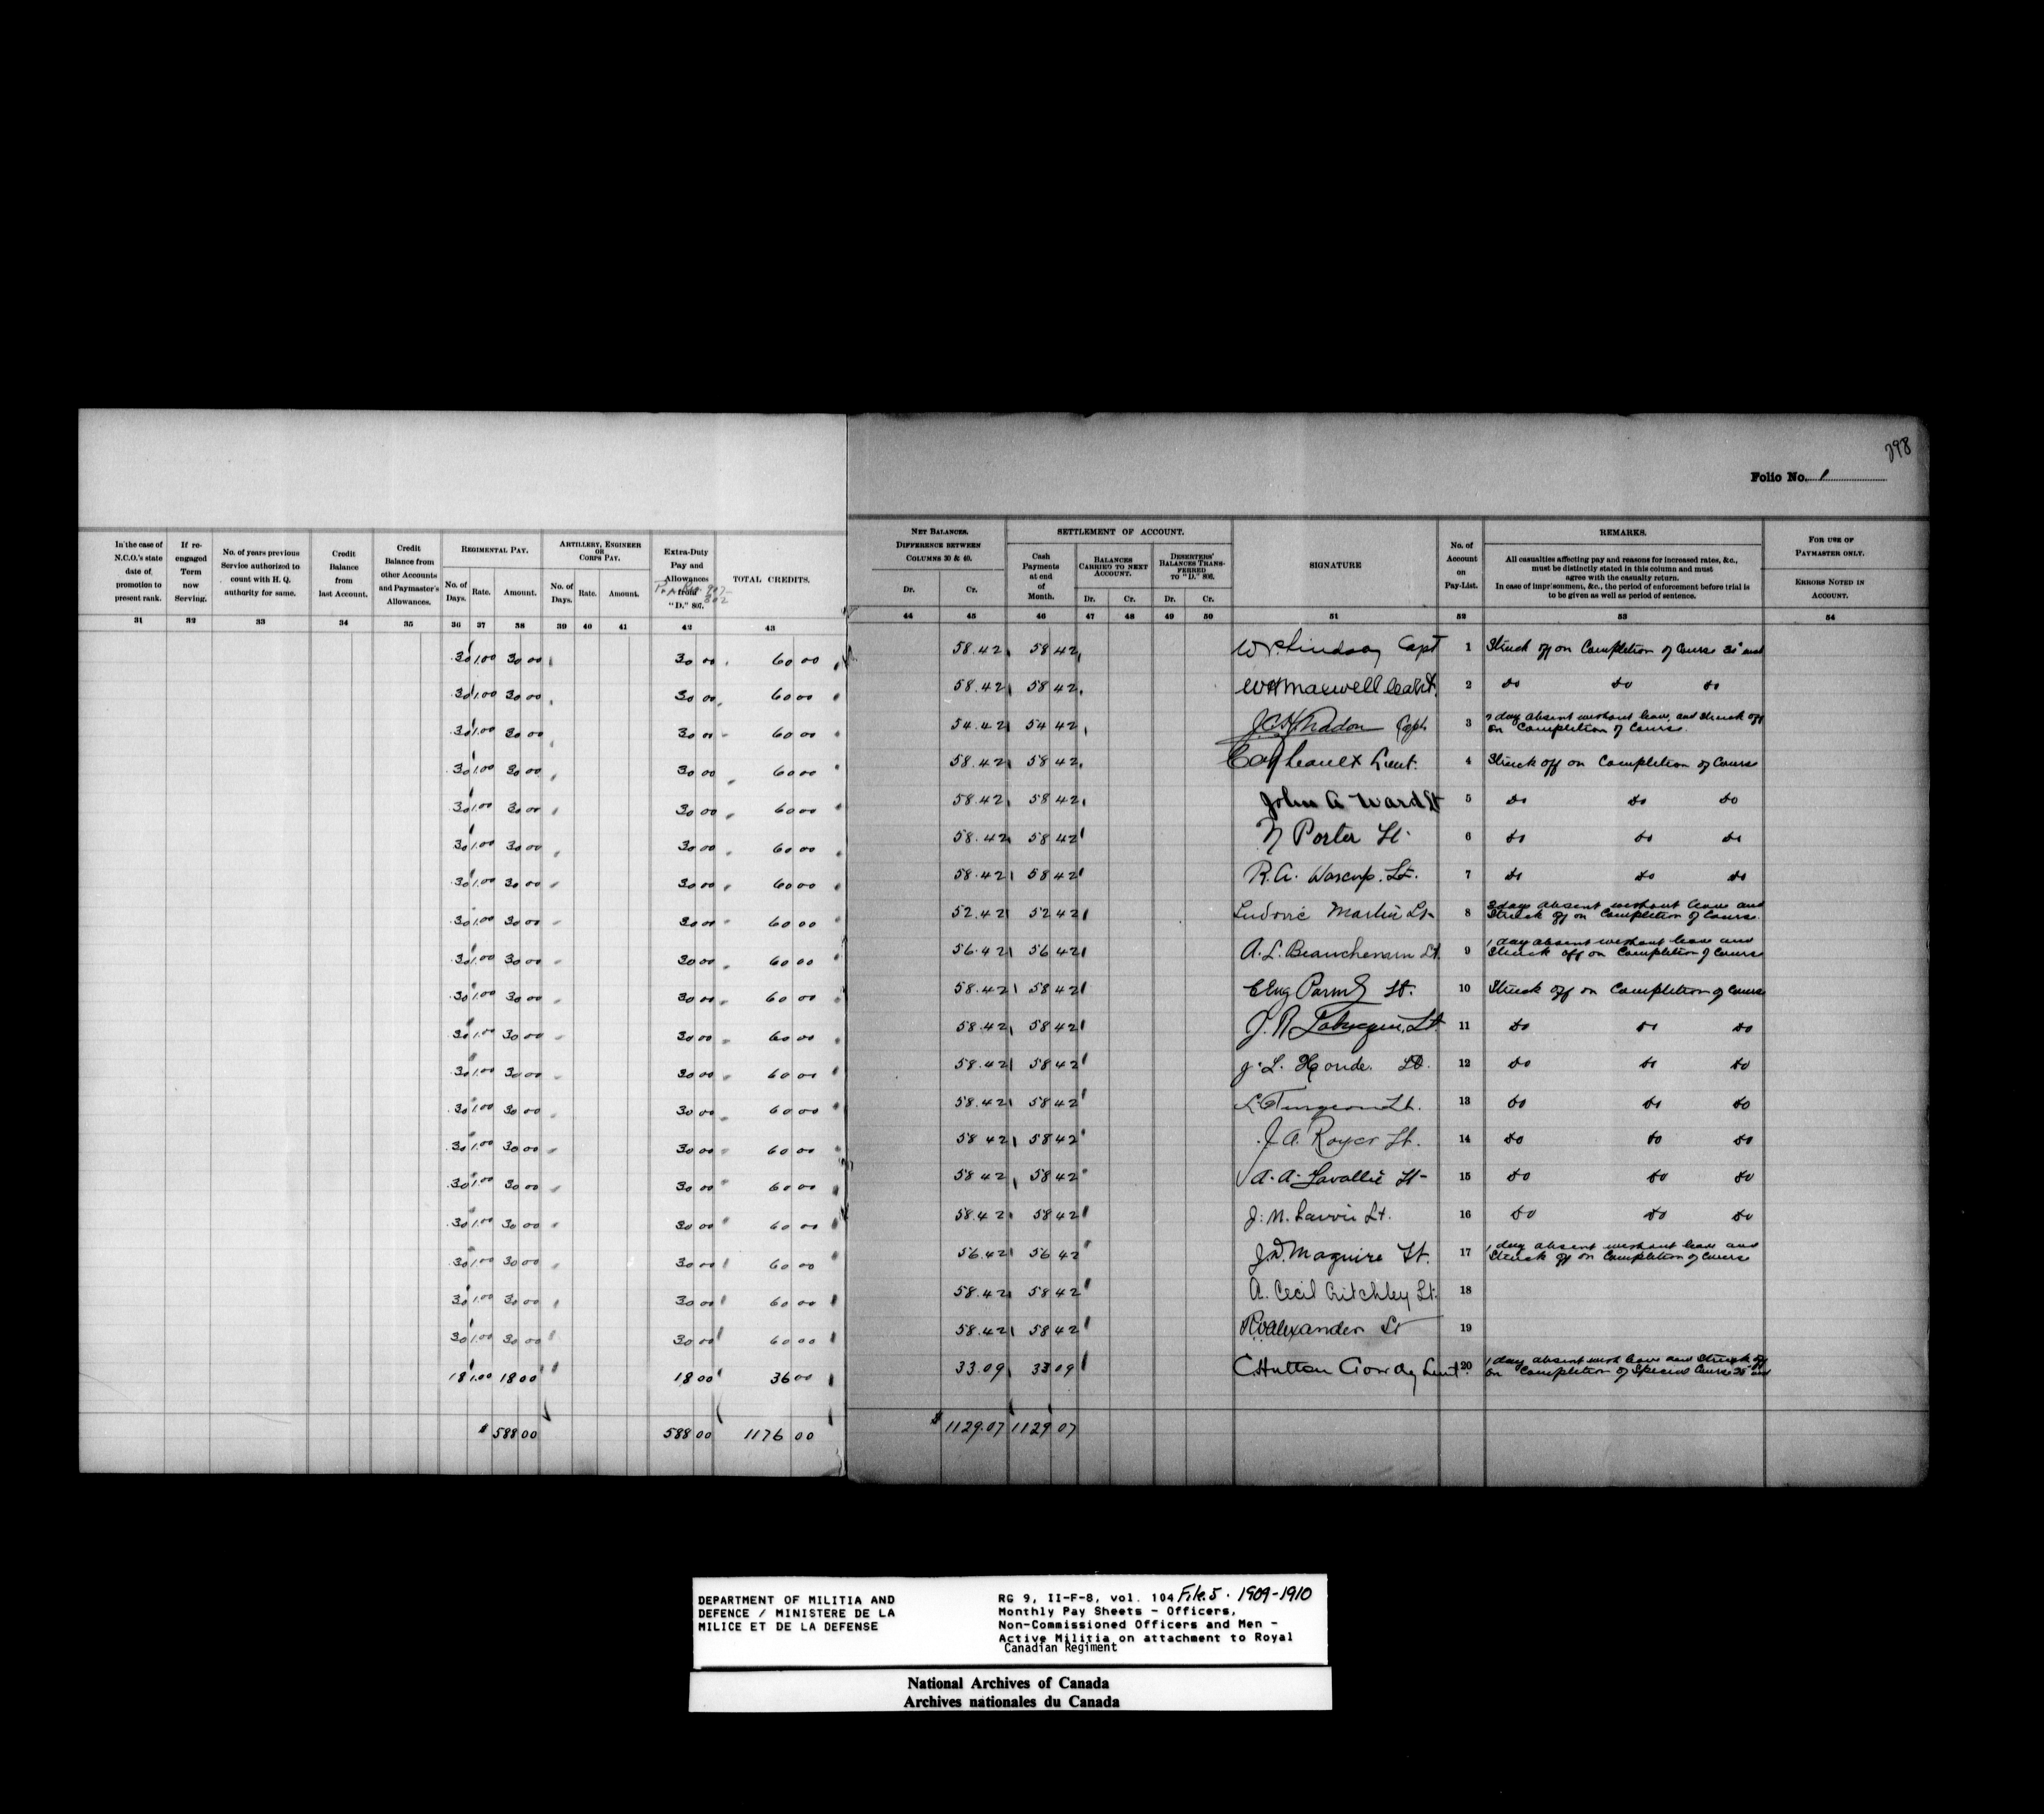 298
Folio No. 1
In the case of N.C.O.'s state date of promotion to present rank.
If re-engaged Term now Serving.
No. of years previous Service authorized to count with H. Q. authority for same.
Credit Balance from last Account.
Credit Balance from other Accounts and Paymaster's Allowances.
REGIMENTAL PAY.
No. of Days. Rate. Amount.
ARTILLERY, ENGINEER OR CORPS PAY.
No. of Days. Rate. Amount.
Extra-Duty Pay and Allowances from "D." 807.
TOTAL CREDITS.
NET BALANCES.
DIFFERENCE BETWEEN COLUMNS 30 & 40.
Dr. Cr.
SETTLEMENT OF ACCOUNT.
Cash Payments at end of Month.
BALANCES CARRIED TO NEXT ACCOUNT.
Dr. Cr.
DESERTERS' BALANCES TRANSFERRED TO "D." 805.
Dr. Cr.
SIGNATURE
No. of Account on Pay-List.
REMARKS.
All casualties affecting pay and reasons for increased rates, &c., must be distinctly stated in this column and must agree with the casualty return.
In case of imprisonment, &c., the period of enforcement before trial is to be given as well as period of sentence.
FOR USE OF PAYMASTER ONLY.
ERRORS NOTED IN ACCOUNT.
31 32 33 34 35 36 37 38 39 40 41 42 43 44 45 46 47 48 49 50 51 52 53 54
30 1.00 30 00 30 00 60 00 58.42 58 42 Lindsay Capt 1 Struck off on Completion of Course
30 1.00 30 00 30 00 60 00 58.42 58 42 WH Maxwell 2 do do do
30 1.00 30 00 30 00 60 00 54.42 54 42 Capt. 3 day absent without leave, and struck off on Completion of Course
30 1.00 30 00 30 00 60 00 58.42 58 42 Lieut. 4 Struck off on Completion of Course
30 1.00 30 00 30 00 60 00 58.42 58 42 John A Ward Lt 5 do do do
30 1.00 30 00 30 00 60 00 58.42 58 42 N Porter Lt. 6 do do do
30 1.00 30 00 30 00 60 00 58.42 58 42 R.A. Lt. 7 do do do
30 1.00 30 00 30 00 60 00 52.42 52 42 Ludovic Martin Lt 8 3 days absent without leave and Struck off on Completion of Course
30 1.00 30 00 30 00 60 00 56.42 56 42 A.L. Beauchemin Lt. 9 1 day absent without leave and Struck off on Completion of Course
30 1.00 30 00 30 00 60 00 58.42 58 42 Lt. 10 Struck off on Completion of Course
30 1.00 30 00 30 00 60 00 58.42 58 42 Lt 11 do do do
30 1.00 30 00 30 00 60 00 58.42 58 42 J.L. Houde Lt. 12 do do do
30 1.00 30 00 30 00 60 00 58.42 58 42 Turgeon Lt. 13 do do do
30 1.00 30 00 30 00 60 00 58 42 58 42 J.A. Royer Lt. 14 do do do
30 1.00 30 00 30 00 60 00 58 42 58 42 A.A. Lavallée Lt 15 do do do
30 1.00 30 00 30 00 60 00 58.42 58 42 J.N. Lt. 16 do do do
30 1.00 30 00 30 00 60 00 56.42 56 42 Maguire Lt. 17 1 day absent without leave and Struck off on Completion of Course
30 1.00 30 00 30 00 60 00 58.42 58 42 A. Cecil Critchley Lt. 18
30 1.00 30 00 30 00 60 00 58.42 58 42 Alexander Lt 19
18 1.00 18 00 18 00 36 00 33.09 33 09 C. Hutton Lieut. 20 1 day absent leave and Struck off on Completion of Special Course
$ 588 00 588 00 1176 00 $ 1129.07 1129 07
DEPARTMENT OF MILITIA AND DEFENCE / MINISTERE DE LA MILICE ET DE LA DEFENSE
RG 9, II-F-8, vol. 104 File 5. 1909-1910
Monthly Pay Sheets - Officers,
Non-Commissioned Officers and Men -
Active Militia on attachment to Royal
Canadian Regiment
National Archives of Canada
Archives nationales du Canada